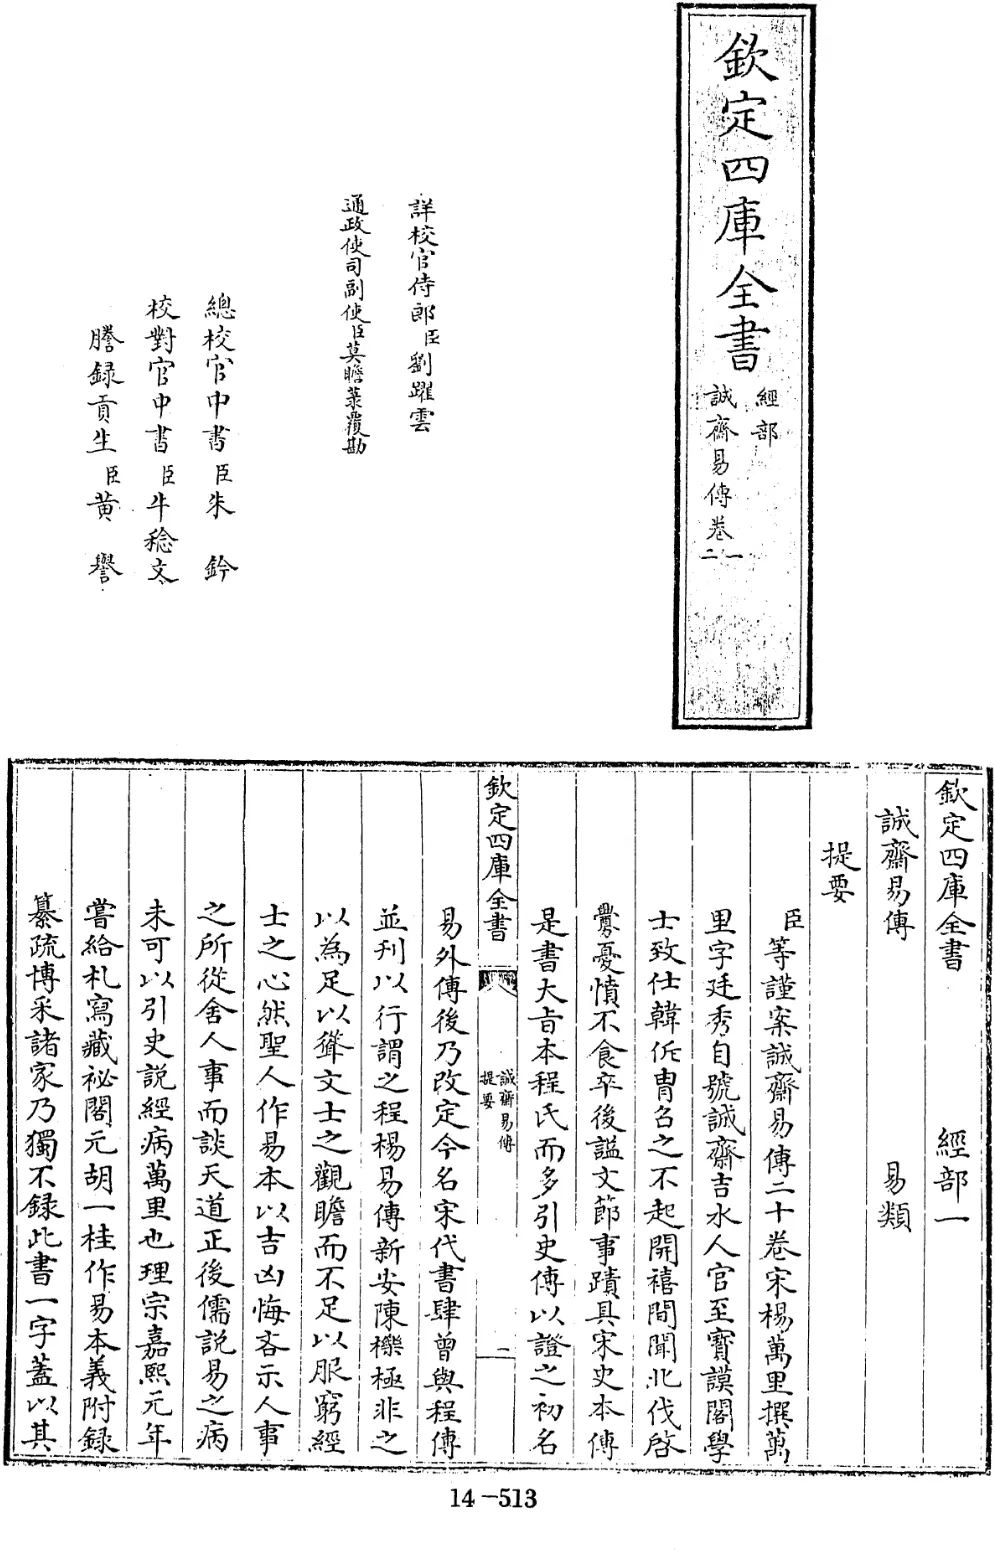 欽定四庫全書
經部
誠齋易傳卷一
二
詳校官侍郎臣劉躍雲
通政使司副使臣莫瞻菉覆勘
總校官中書臣朱鈐
校對官中書臣牛稔文
謄錄貢生臣黃譽
欽定四庫全書 經部一
誠齋易傳 易類
提要
臣等謹案誠齋易傳二十卷宋楊萬里撰萬
里字廷秀自號誠齋吉水人官至寳謨閣學
士致仕韓侂胄召之不起開禧間聞北伐啓
釁憂憤不食卒後諡文節事蹟具宋史本傳
是書大旨本程氏而多引史傳以證之初名
欽定四庫全書
誠齋易傳
提要
一
易外傳後乃改定今名宋代書肆曾與程傳
並刊以行謂之程楊易傳新安陳櫟極非之
以為足以聳文士之觀瞻而不足以服窮經
士之心然聖人作易本以吉凶悔吝示人事
之所從舍人事而談天道正後儒說易之病
未可以引史說經病萬里也理宗嘉熙元年
嘗給札寫藏祕閣元胡一桂作易本義附録
纂疏博采諸家乃獨不録此書一字蓋以其
14-513